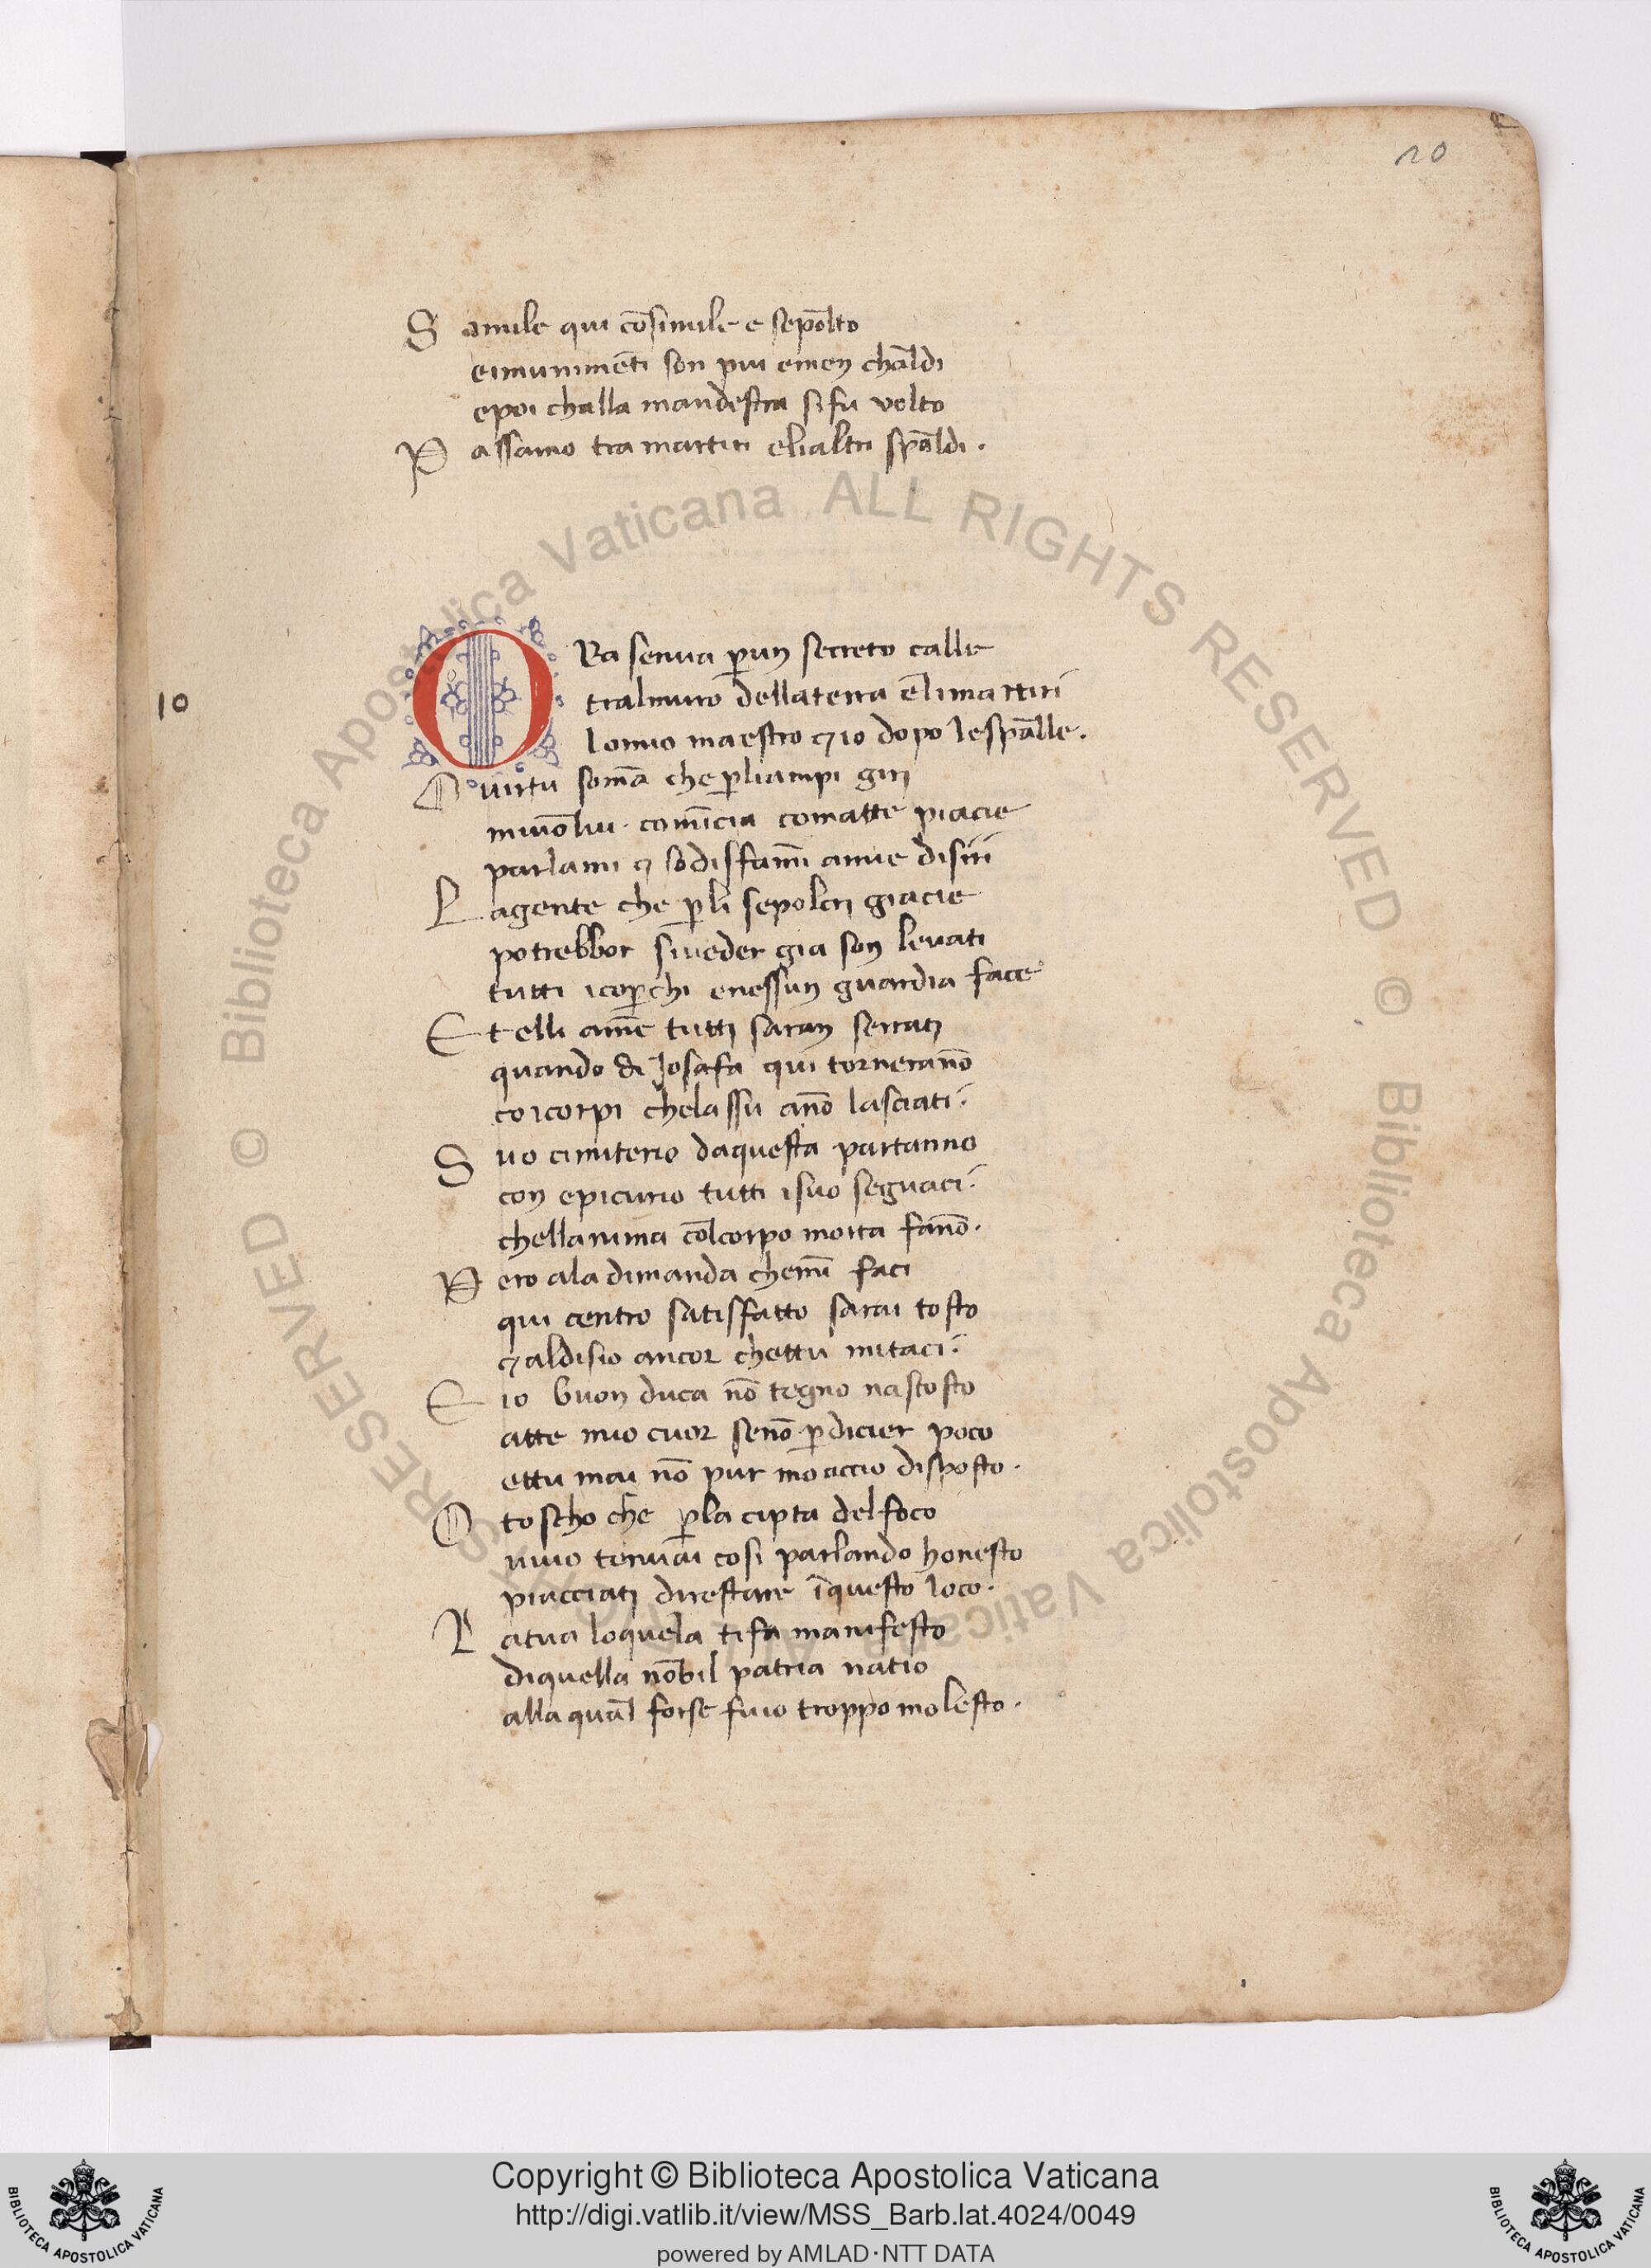 20
S amile qui cōsimile e sepōlto
eimunimēti son piu emen chāldi
epoi challa mandestra sifu volto
P assamo tra martiri elialtri spāldi.
10
O Ra senva p̱un secreto calle
tralmuro dellaterra ēlimartiri
lomio maestro ⁊io dopo lespālle.
O uirtu som̄a che p̱liampi giri
miuōlui. comīcia comatte piacie
parlami ⁊ sodisfam̄i amie disiri
L agente che p̱li sepolcri giacie
potrebbor siueder gia son leuati
tutti icop̱chi enessun guardia face
E t elli am̄e tutti saran serrati
quando di Josafa qui tornerāno
coicorpi chelassu āno lasciati.
S uo cimiterio daquesta partanno
con epicurio tutti isuo seguaci.
chellanima cōlcorpo morta fāno.
P ero ala dimanda chem̄i faci
qui centro satisfatto sarai tosto
⁊aldisio ancor chettu mitaci.
E io buon duca nō tegno nascosto
atte mio cuor senō p̱dicier poco
ettu mai nō pur mo accio disposto.
O toscho che p̱la cipta delfoco
uiuo tenuai cosi parlando honesto
piacciati direstare īquesto loco.
L atua loquela tifa manifesto
diquella nōbil patria natio
alla quāl forse fuio troppo molesto.
© Biblioteca Apostolica Vaticana ALL RIGHTS RESERVED © Biblioteca Apostolica Vaticana ALL RIGHTS RESERVED
BIBLIOTECA APOSTOLICA VATICANA
Copyright © Biblioteca Apostolica Vaticana
http://digi.vatlib.it/view/MSS_Barb.lat.4024/0049
powered by AMLAD·NTT DATA
BIBLIOTECA APOSTOLICA VATICANA